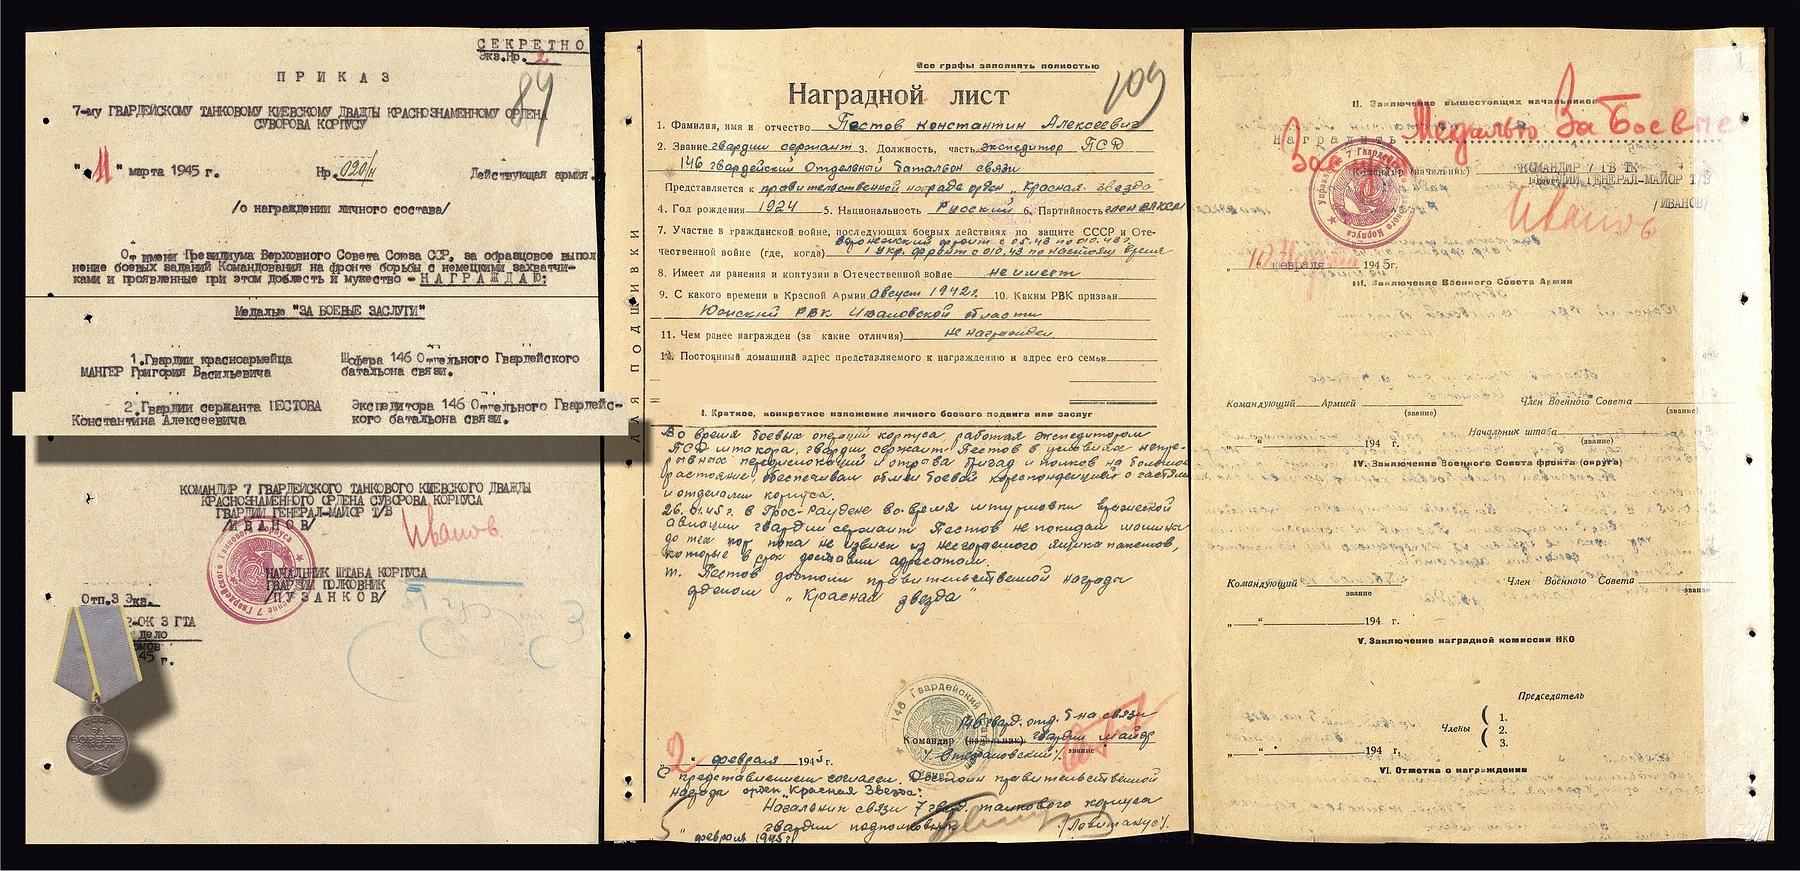 СЕКРЕТНО
Экз.Нр. 2
84
ПРИКАЗ
7-му ГВАРДЕЙСКОМУ ТАНКОВОМУ КИЕВСКОМУ ДВАЖДЫ КРАСНОЗНАМЕННОМУ ОРДЕНА
СУВОРОВА КОРПУСУ
"11" марта 1945 г. Нр. 020/н Действующая армия.
/о награждении личного состава/
От имени Президиума Верховного Совета Союза ССР, за образцовое выпол
нение боевых заданий Командования на фронте борьбы с немецкими захватчи-
ками и проявленные при этом доблесть и мужество - НАГРАЖДАЮ:
Медалью "ЗА БОЕВЫЕ ЗАСЛУГИ"
1.Гвардии красноармейца Шофера 146 Отдельного Гвардейского
МАНГЕР Григория Васильевича батальона связи.
2.Гвардии сержанта ПЕСТОВА Экспедитора 146 Отдельного Гвардейс-
Константина Алексеевича кого батальона связи.
КОМАНДИР 7 ГВАРДЕЙСКОГО ТАНКОВОГО КИЕВСКОГО ДВАЖДЫ
КРАСНОЗНАМЕННОГО ОРДЕНА СУВОРОВА КОРПУСА
ГВАРДИИ ГЕНЕРАЛ-МАЙОР Т/В
/ИВАНОВ/
Иванов
НАЧАЛЬНИК ШТАБА КОРПУСА
ГВАРДИИ ПОЛКОВНИК
/ПУЗАНКОВ/
Отп.3 Экз.
Р-ОК 3 ГТА
дело
45 г.
СССР
ЗА
БОЕВЫЕ
ЗАСЛУГИ
ДЛЯ ПОДШИВКИ
Все графы заполнять полностью
109
Наградной лист
1. Фамилия, имя и отчество Пестов Константин Алексеевич
2. Звание гвардии сержант 3. Должность, часть экспедитор ПСД
146 гвардейский Отдельной батальон связи
Представляется к правительственной награде орден „Красная звезда
4. Год рождения 1924 5. Национальность Русский 6. Партийность член ВЛКСМ
7. Участие в гражданской войне, последующих боевых действиях по защите СССР и Оте-
чественной войне (где, когда) Воронежский фронт с 05.43 по 010.43г.
1 Укр. фронт с 010.43 по настоящ. время
8. Имеет ли ранения и контузии в Отечественной войне не имеет
9. С какого времени в Красной Армии август 1942г. 10. Каким РВК призван
Южский РВК Ивановской области
11. Чем ранее награжден (за какие отличия) не награжден.
12. Постоянный домашний адрес представляемого к награждению и адрес его семьи
I. Краткое, конкретное изложение личного боевого подвига или заслуг
Во время боевых операций корпуса, работая экспедитором
ПСД штакора, гвардии сержант Пестов в условиях непре-
рывных передислокаций и отрыва бригад и полков на большие
растояние, обеспечивал обмен боевой кореспонденцией с частями
и отделами корпуса.
26.01.45 г. в Грос-Раудене во время штурмовки вражеской
авиации гвардии сержант Пестов не покидал машины
до тех пор пока не извлек из несгораемого ящика пакетов,
которые в срок доставил адресатам.
т. Пестов достоин правительственной награды
орденом „Красная звезда"
146 Гвардейский
146 гвард. отд. б-на связи
Командир (начальник) гвардии майор
звание
2 февраля 1945 г.
С представлением согласен. Достоин правительственной
награды орден „Красная Звезда".
Начальник связи 7 гвард. танкового корпуса
гвардии подполковник
/Левитанус/.
5 февраля 1945г
II. Заключение вышестоящих начальников
Наградить Медалью За Боевые
За
Командир (начальник) КОМАНДИР 7 ГВ ТК
ГВАРДИИ ГЕНЕРАЛ-МАЙОР Т/В
/ИВАНОВ/
Иванов
февраля 1945г.
III. Заключение Военного Совета Армии
Командующий Армией Член Военного Совета
(звание) (звание)
„ “ 194 г. Начальник штаба
(звание)
IV. Заключение Военного Совета фронта (округа)
Командующий Член Военного Совета
звание звание
„ “ 194 г.
V. Заключение наградной комиссии НКО
Председатель
Члены 1.
2.
3.
„ “ 194 г.
VI. Отметка о награждении